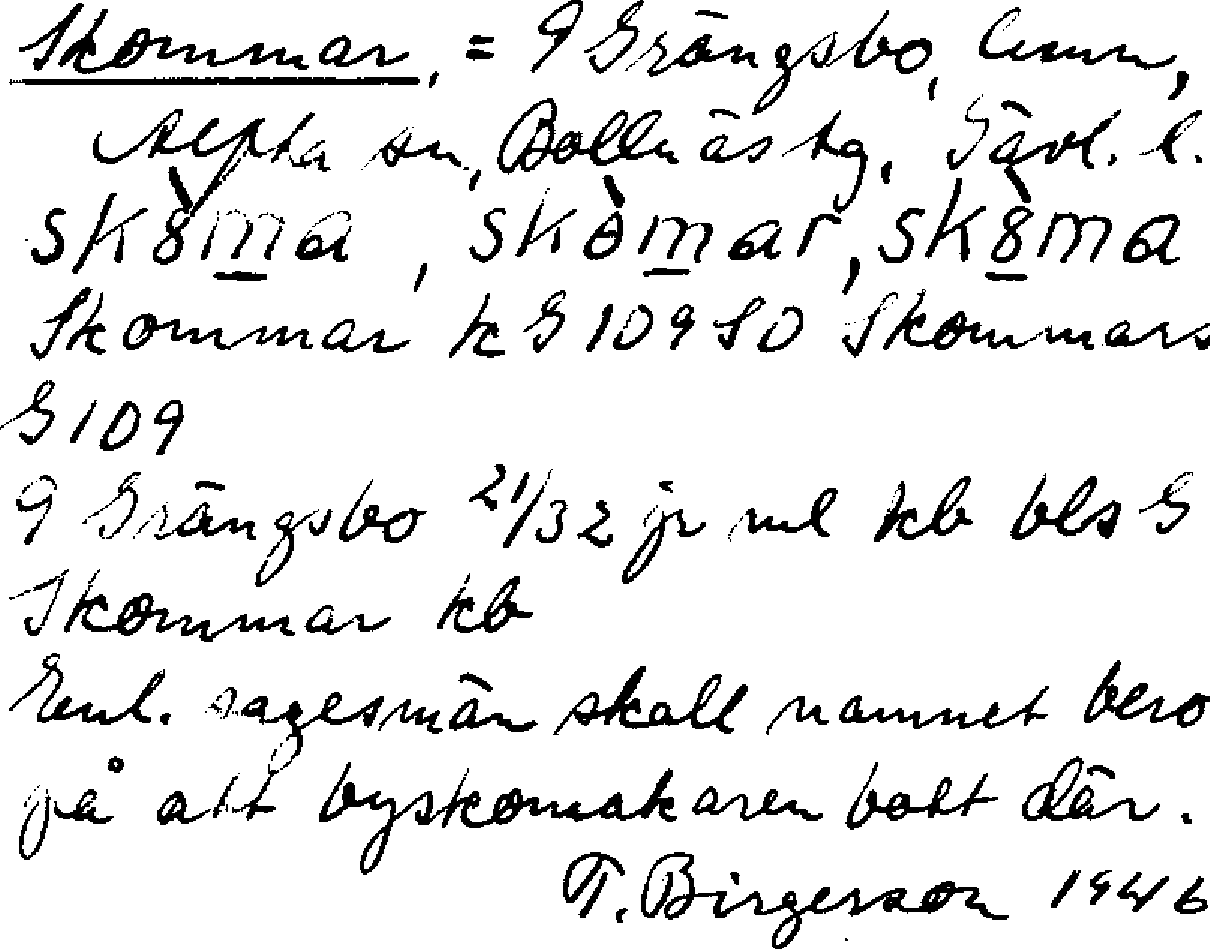 Skommar, = 9 Grängsbo, hmn,
Alfta sn, Bollnäs tg, Gävl. l.
skò̀ma, skòmar, skòma
Skommar k G 109 SO Skommars
G 109
9 Grängsbo 21/32 jr ml kb bls G
Skommar kb
Enl. sagesmän skall namnet bero
på att byskomakaren bott där.
T. Birgerson 1946